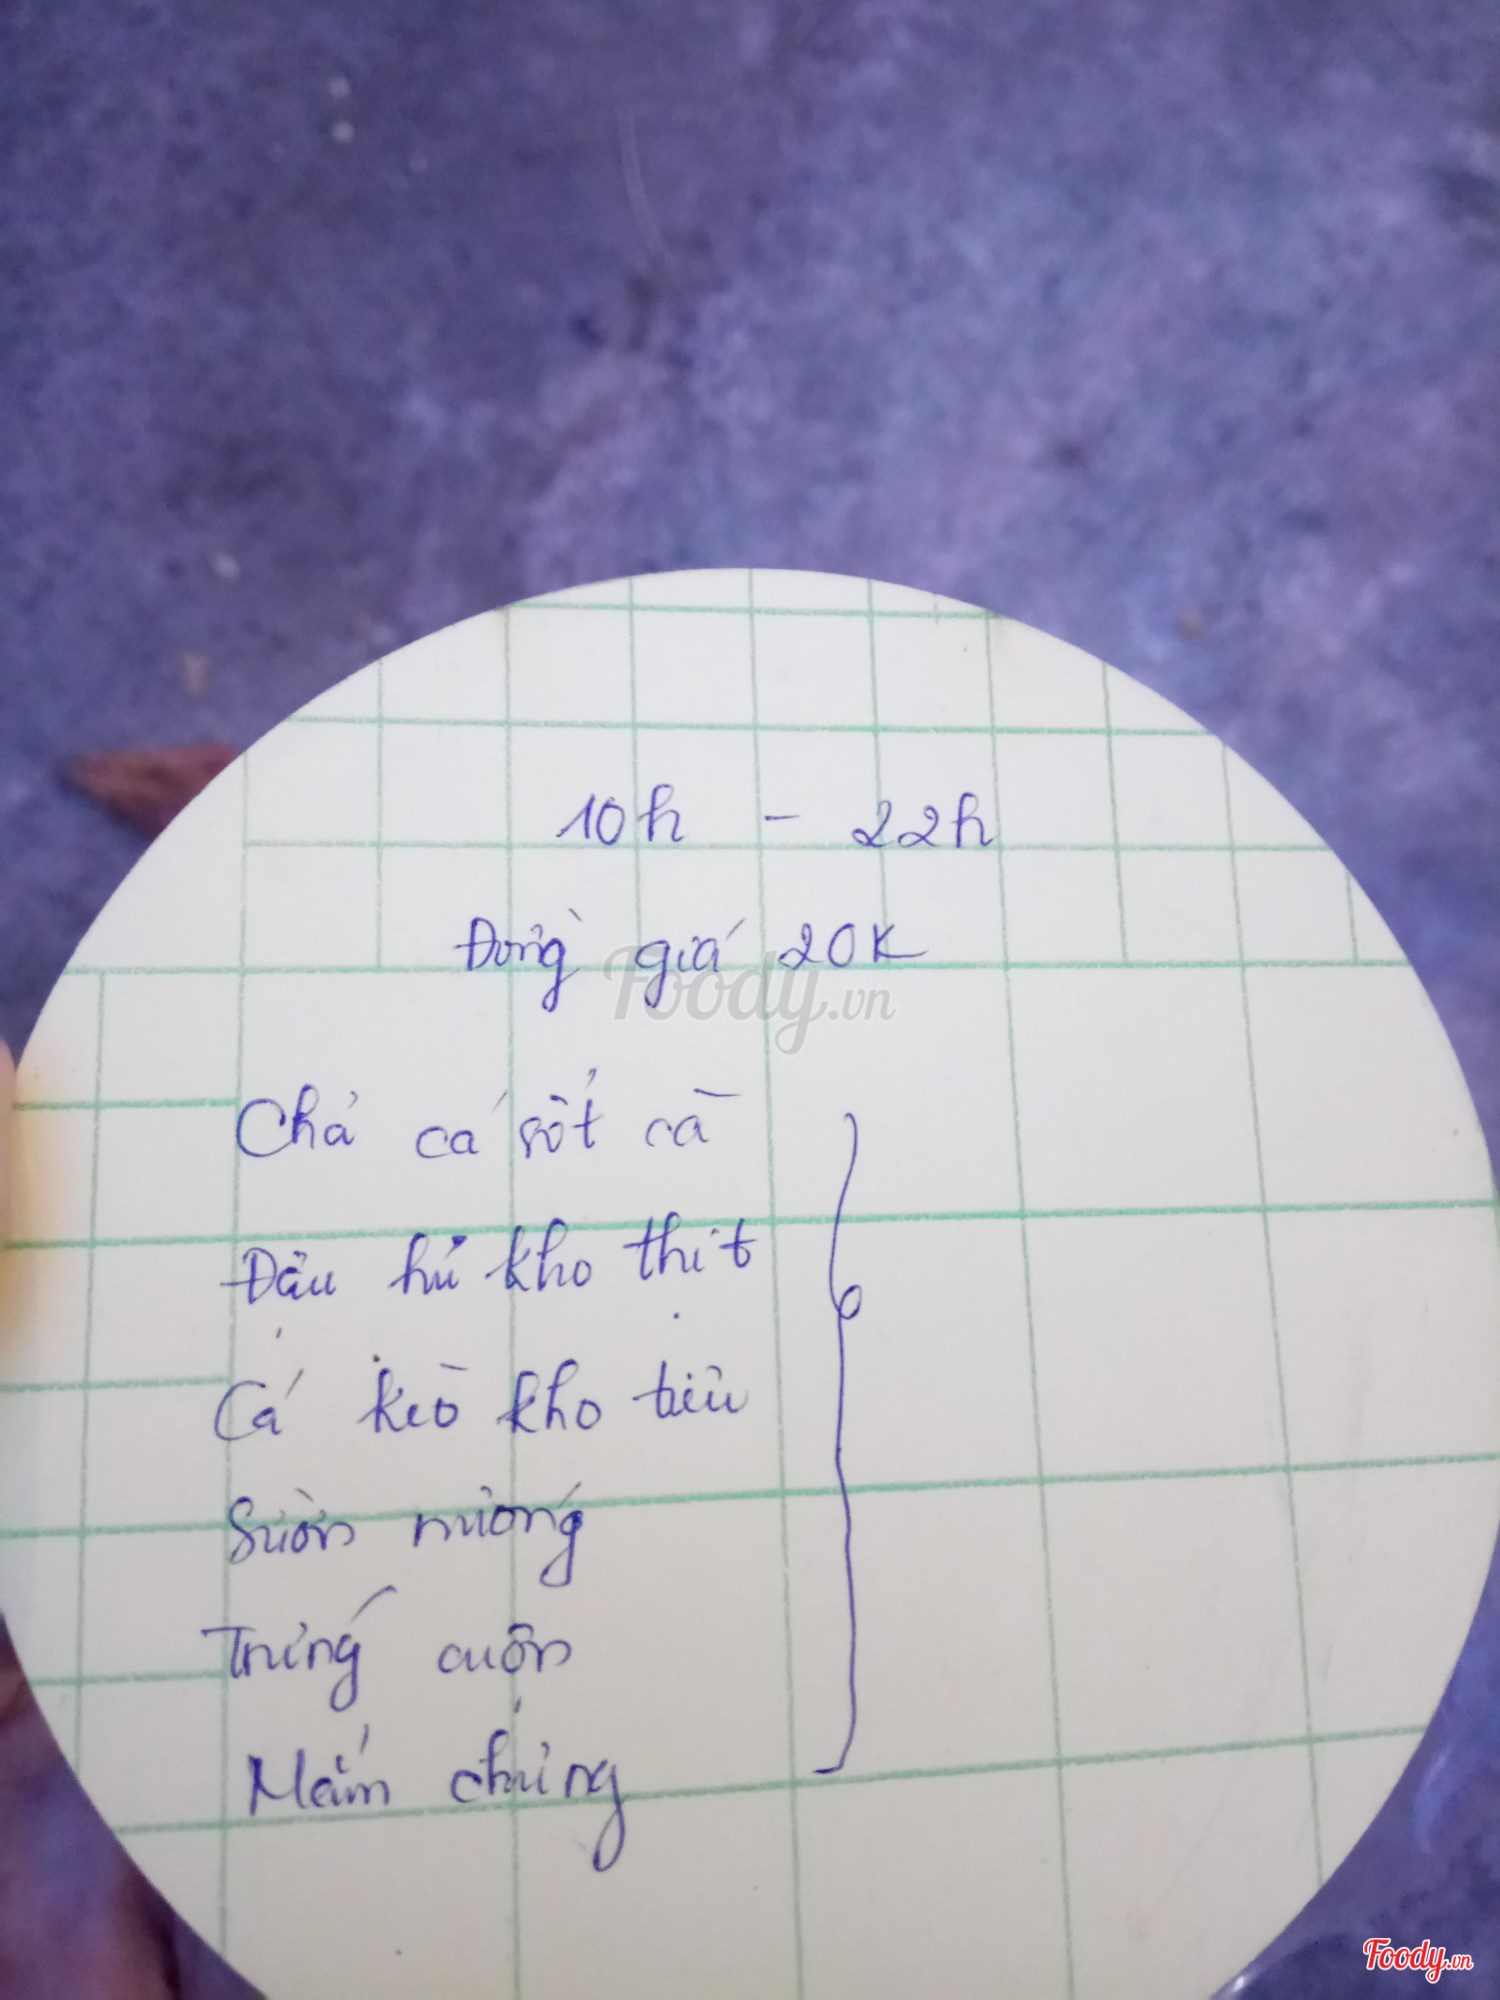 10h - 22h
Đồng giá 20K
Foody.vn
Chả cá sốt cà
Đậu hủ kho thịt
Cá kèo kho tiêu
Sườn nướng
Trứng cuộn
Mắm chưng
Foody.vn